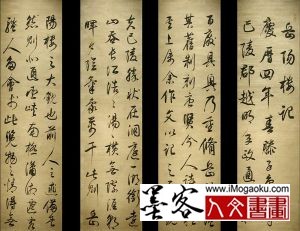 岳陽樓記
慶曆四年春滕子京
巴陵郡越明年政通
百廢具興乃重修岳
其舊制刻唐賢今人詩
其上屬余作文以記之
夫巴陵勝狀在洞庭一湖銜遠
山吞長江浩浩湯湯橫無際涯朝
暉夕陰氣象萬千此則岳
陽樓之大觀也前人之述備矣
然則北通巫峽南極瀟湘遷客
騷人多會於此覽物之情得無
墨客
www.iMogaoku.com
人文書畫